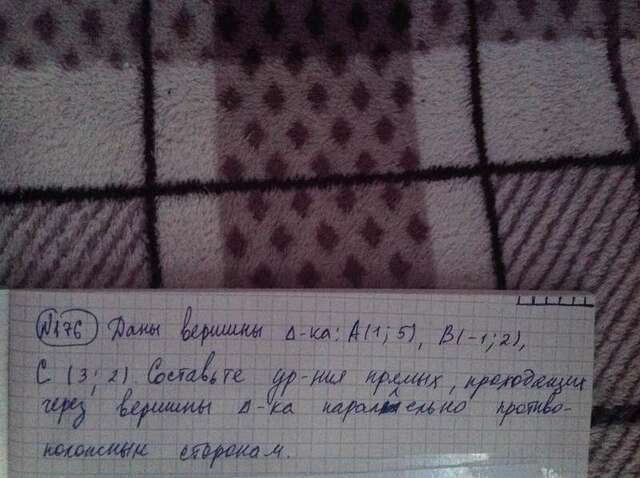 №176 Даны вершины Δ-ка: A(1; 5), B(-1; 2),
C (3; 2) Составьте ур-ния прямых, проходящих
через вершины Δ-ка параллельно противо-
положным сторонам.